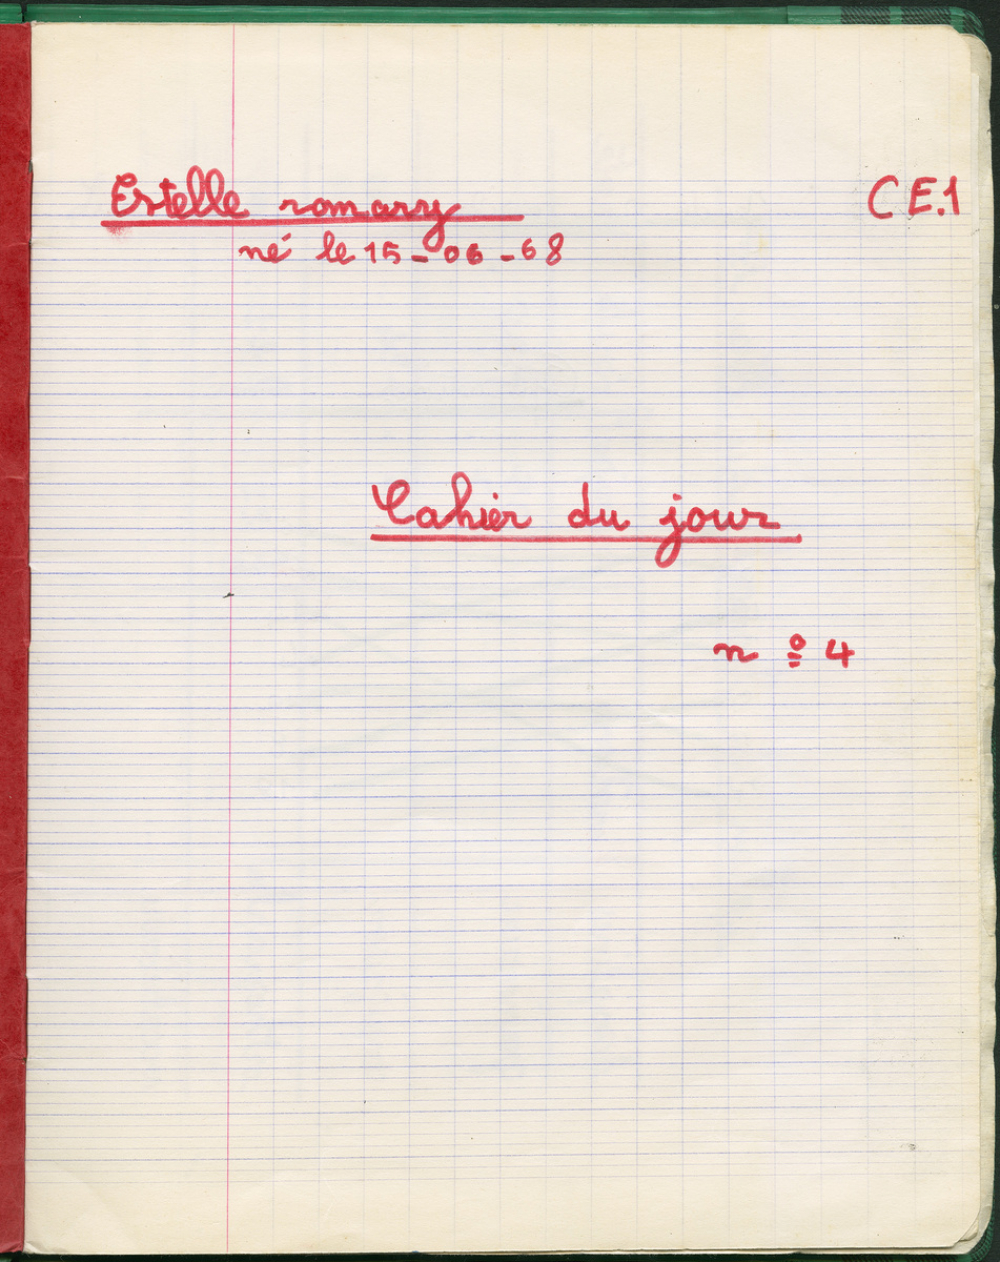 Estelle romary
CE.1
né le 15-06-68
Cahier du jour
n° 4